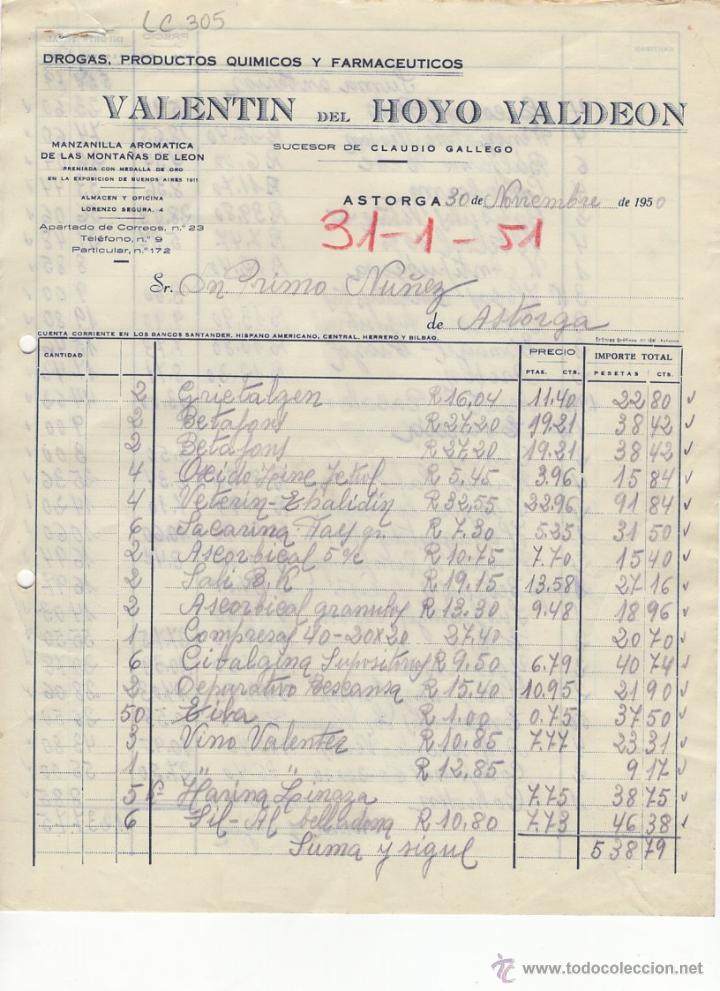 LC 305
DROGAS, PRODUCTOS QUIMICOS Y FARMACEUTICOS
VALENTIN DEL HOYO VALDEON
MANZANILLA AROMATICA
DE LAS MONTAÑAS DE LEON
PREMIADA CON MEDALLA DE ORO
EN LA EXPOSICION DE BUENOS AIRES 1911
SUCESOR DE CLAUDIO GALLEGO
ALMACEN Y OFICINA
LORENZO SEGURA, 4
ASTORGA 30 de Noviembre de 1950
Apartado de Correos, n.º 23
Teléfono, n.º 9
Particular, n.º 172
31-1-51
Sr. Dn Primo Nuñez
de Astorga
CUENTA CORRIENTE EN LOS BANCOS SANTANDER, HISPANO AMERICANO, CENTRAL, HERRERO Y BILBAO.
CANTIDAD PRECIO IMPORTE TOTAL
PTAS. CTS. PESETAS CTS.
2 Grietalgen R 16,04 11.40 22 80
2 Betafons R 27,20 19.21 38 42
2 Betafons R 27,20 19.21 38 42
4 Oxido Zinc R 5.45 3.96 15 84
4 Veterin R 32,55 22.96 91 84
6 Sacarina gr. R 7.30 5.25 31 50
2 Ascorbical 5 R 10.75 7.70 15 40
2 Sali B.K R 19.15 13.58 27 16
2 Ascorbical granulos R 13.30 9.48 18 96
1 Compresas 40-20x20 27.40 20 70
6 Cibalgina Supositorios R 9.50 6.79 40 74
2 Depurativo Bescansa R 15.40 10.95 21 90
50 R 1.00 0.75 37 50
3 Vino Valentez R 10.85 7.77 23 31
1 " " R 12.85 9 17
5 K Harina Linaza 7.75 38 75
6 Sil-Al belladona R 10,80 7.73 46 38
Suma y sigue 538 79
www.todocoleccion.net